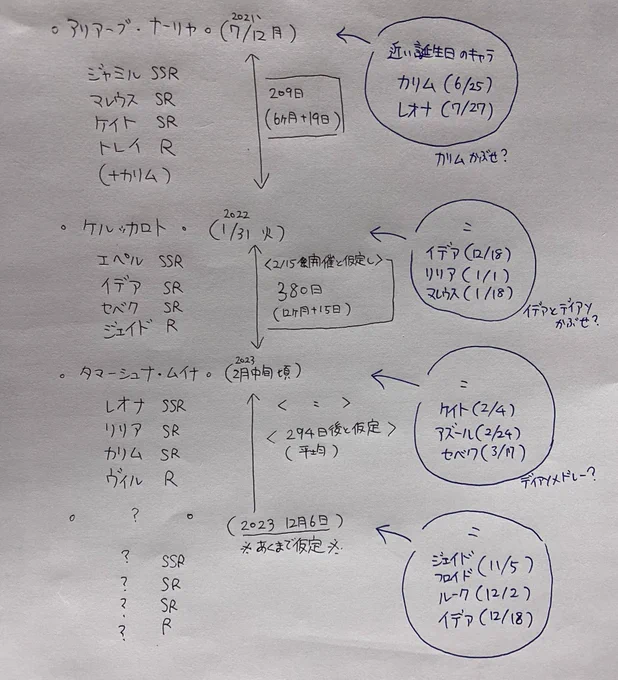 。アリアーブ・ナーリヤ。(2021、7/12月)
ジャミル SSR
マレウス SR
ケイト SR
トレイ R
(+カリム)
209日
(6ヶ月+19日)
近い誕生日のキャラ
カリム(6/25)
レオナ(7/27)
カリムかぶせ?
。ケルッカロト。(2022 1/31 火)
エペル SSR
イデア SR
セベク SR
ジェイド R
<2/15開催と仮定し>
380日
(12ヶ月+15日)
〃
イデア(12/18)
リリア(1/1)
マレウス(1/18)
イデアとディアソかぶせ?
。タマーシュナ・ムイナ。(2023 2月中旬頃)
レオナ SSR
リリア SR
カリム SR
ヴィル R
< 〃 >
<294日後と仮定>
(平均)
〃
ケイト(2/4)
アズール(2/24)
セベク(3/17)
ディアソメドレー?
。 ? 。(2023 12月6日)
※あくまで仮定※
? SSR
? SR
? SR
? R
〃
ジェイド フロイド(11/5)
ルーク(12/2)
イデア(12/18)